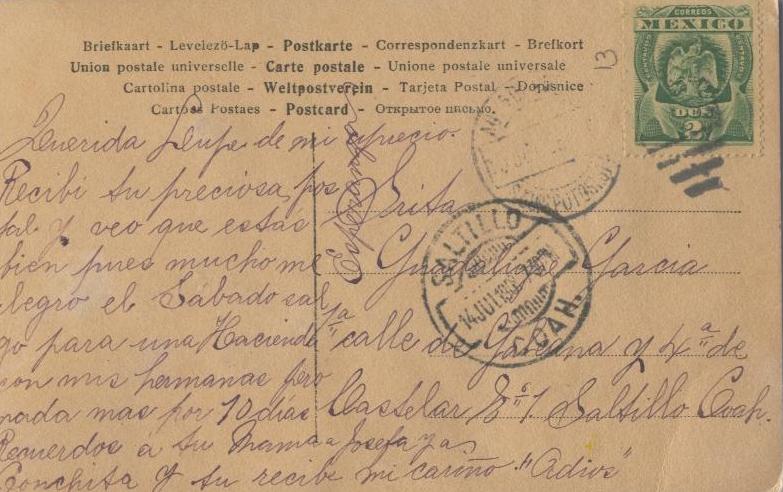 Briefkaart - Levelezö-Lap - Postkarte - Correspondenzkart - Brefkort
Union postale universelle - Carte postale - Unione postale universale
Cartolina postale - Weltpostverein - Tarjeta Postal - Dopisnice
Cartoes Postaes - Postcard - Открытое письмо.
CORREOS
MEXICO
DOS
2
CENTAVOS
CENTAVOS
13
Querida Lupe de mi aprecio.
Recibi tu preciosa pos
tal y veo que estas
bien pues mucho me
alegro el Sabado sal
go para una Hacienda
con mis hermanas pero
nada mas por 10 dias
Recuerdos a tu Mama Josefa y a
Conchita y tu recibe mi cariño "Adios"
Esperanza
Srita
Guadalupe Garcia
1a calle de y 4a de
Castelar No 1. Saltillo Coah.
SALTILLO
14 JUL
COAH.